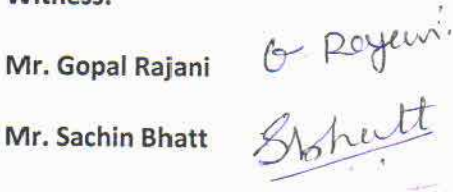 Witness:
Mr. Gopal Rajani G Rajani.
Mr. Sachin Bhatt SBhatt